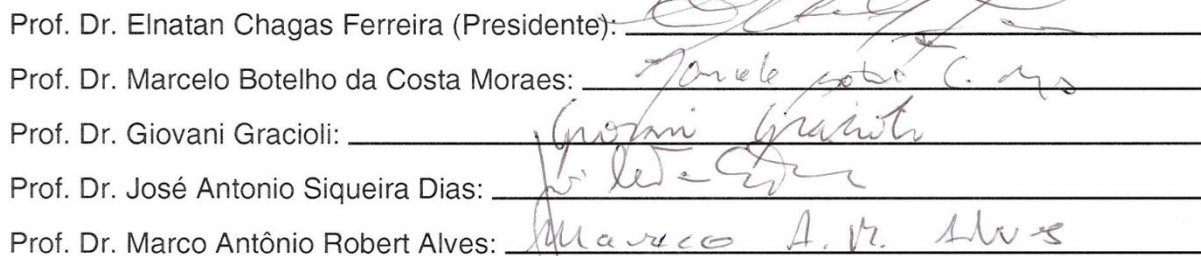 Prof. Dr. Elnatan Chagas Ferreira (Presidente):
Prof. Dr. Marcelo Botelho da Costa Moraes:
Prof. Dr. Giovani Gracioli: Giovani Gracioli
Prof. Dr. José Antonio Siqueira Dias:
Prof. Dr. Marco Antônio Robert Alves: Marco A. R. Alves